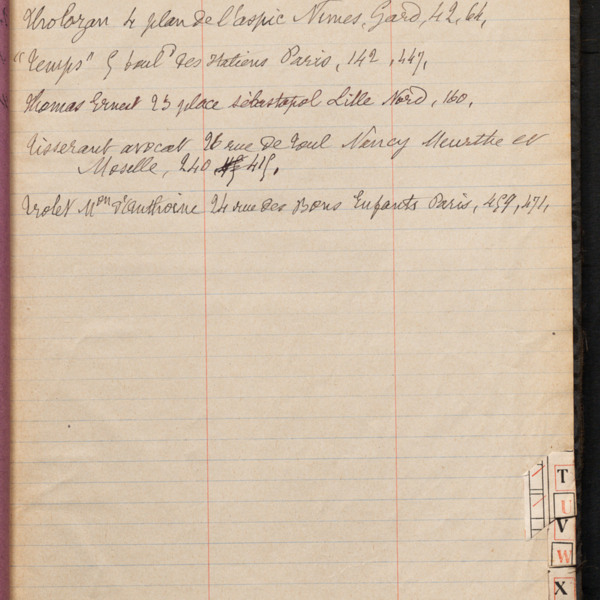 Tholozan 4 plan de l'aspic Nimes, Gard, 42, 64,
"Temps" 5 boul^d des Italiens Paris, 142, 447,
Thomas Ernest 23 place sébastopol Lille Nord, 160,
Tisserant avocat 26 rue de Toul Nancy Meurthe et
Moselle, 240 415,
Trolet M^on d'Anthoine 24 rue des Bons Enfants Paris, 459, 471,
T
U
V
W
X